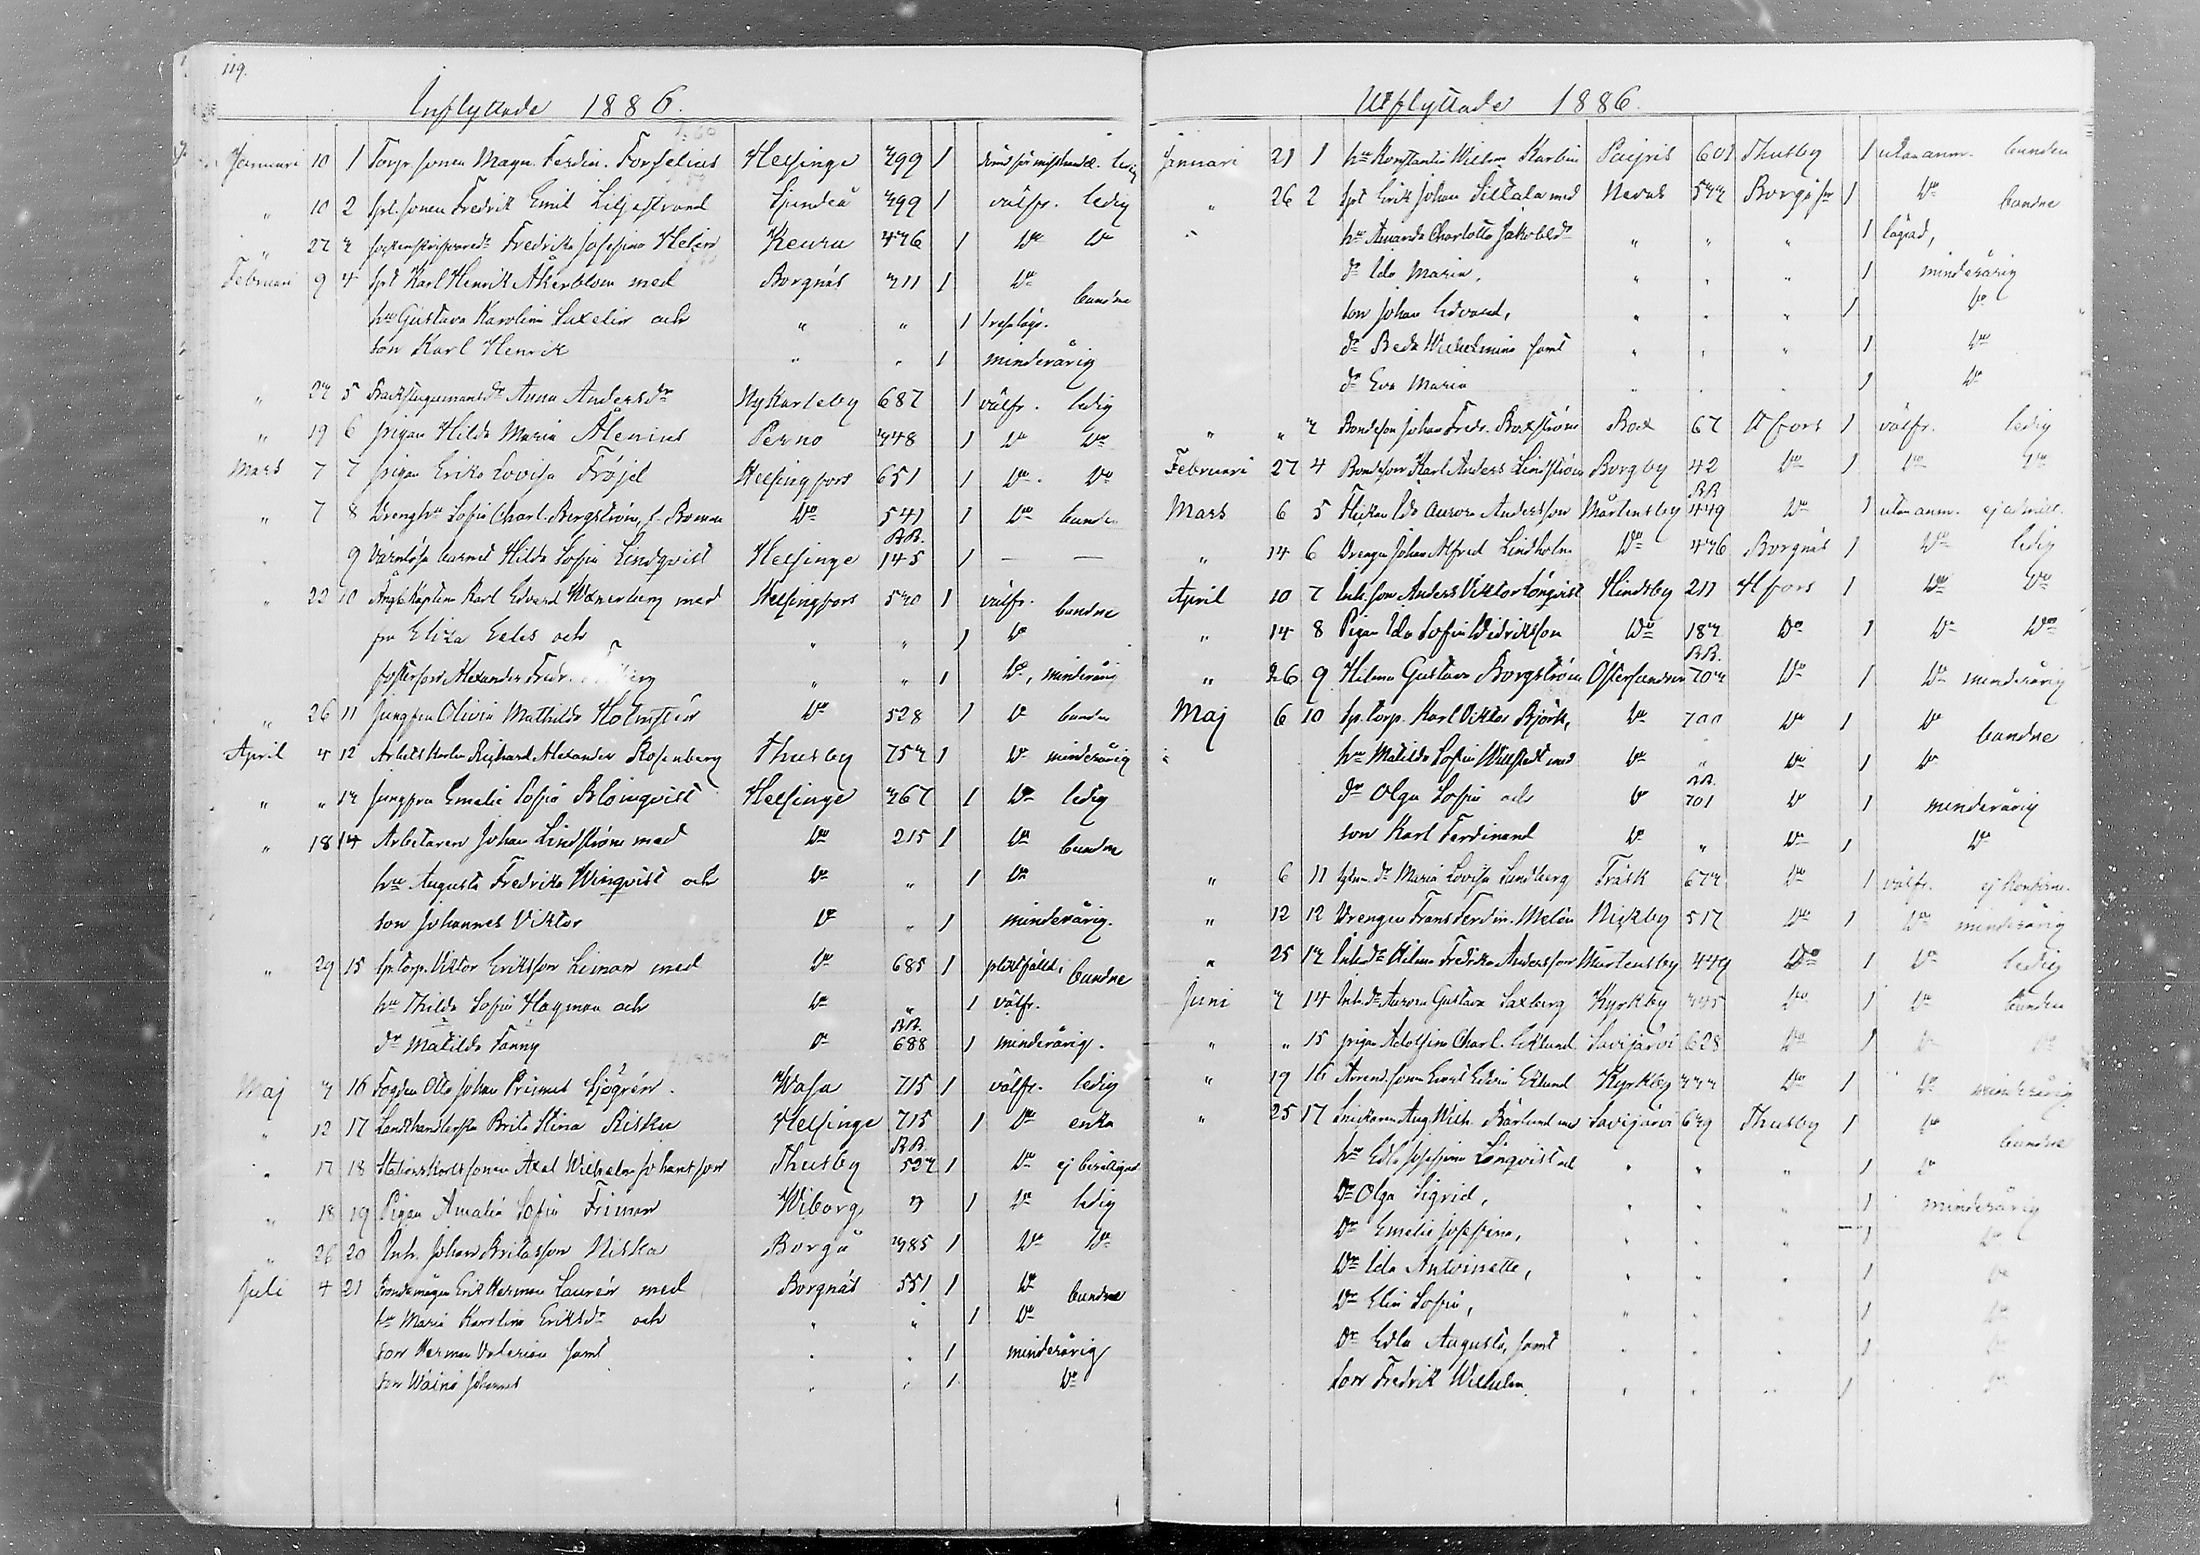 119.
Inflyttade 1886.
Januari 10 1 Torp. sonen Magn. Ferdin. Forselius Helsinge 399 1 ledig
" 10 2 Spl. sonen Fredrik Emil Liljestrand Sjundeå 399 1 välfr. ledig
" 27 3 Fredrika Josefina Helin Keuru 436 1 Do Do
Februari 9 4 Spl Karl Henrik Åkerblom med Borgnäs 311 1 Do bundne
hu Gustava Karolina Saxelin och " " 1
son Karl Henrik " " 1 minderårig
" 23 5 Backstugumansdr Anna Andersdr Ny Karleby 687 1 välfr. ledig
" 19 6 pigan Hilda Maria Ålenius Perno 348 1 Do Do
Mars 7 7 pigan Erika Lovisa Fröjd Helsingfors 651 1 Do Do
" 7 8 Drenghu Sofia Charl. Bergström, f. Boman Do 541 1 Do bunden
BB.
" 9 Värnlösa barnet Hilda Sofia Lindqvist Helsinge 145 1 — —
" 22 10 Karl Edvard Wänerberg med Helsingfors 530 1 välfr. bundne
fru Eliza Eeles och " " 1 Do
fosterson Alexander Fredr. " " 1 Do, minderårig
" 26 11 Jungfru Olivia Mathilda Holmstén Do 528 1 Do bunden
April 4 12 Arbetskarlen Richard Alexander Rosenberg Thusby 753 1 Do minderårig
" " 13 Jungfru Emelie Sofia Blomqvist Helsinge 367 1 Do ledig
" 18 14 Arbetaren Johan Lindström med Do 215 1 Do bundne
hu Augusta Fredrika Winqvist och Do " 1 Do
son Johannes Viktor Do " 1 minderårig.
" 29 15 Sp. torp. Viktor Eriksson Liman med Do 685 1 bundne
hu Thilda Sofia Hagman och Do " 1 välfr.
BB.
dr Matilda Fanny Do 688 1 minderårig.
Maj 3 16 Fogden Otto Johan Primus Sjögrén. Wasa 715 1 välfr. ledig
" 12 17 Brita Stina Risku Helsinge 715 1 Do enka
BB.
" 17 18 Axel Wilhelm Johansson Thusby 533 1 Do
" 18 19 Pigan Amalia Sofia Friman Wiborg 1 Do ledig
" 26 20 Inh. Johan Eriksson Niska Borgå 385 1 Do Do
Juli 4 21 Bondemågen Erik Herman Laurén med Borgnäs 551 1 Do bundne
hu Maria Karolina Eriksdr och " " 1 Do
son Herman Valerian samt " " 1 minderårig
son Wäinö Johannes " " 1 Do
Utflyttade 1886.
Januari 21 1 hu Konstantia Wilhelm. Karlin Paipis 601 Thusby 1 utan anm. bunden
" 26 2 Spl Erik Johan Siltala med Nevas 573 Borgå sn 1 Do bundne
" hu Amanda Charlotta Jakobsdr " " " 1 lågad,
dr Ida Maria, " " " 1 minderårig
son Johan Edvard, " " " 1 Do
dr Beda Wilhelmina samt " " " 1 Do
dr Eva Maria " " " 1 Do
" " 3 Bondeson Johan Fredr. Boxström Box 67 Hfors 1 välfr. ledig
Februari 27 4 Bondeson Karl Anders Lindström Borgby 42 Do 1 Do Do
BB
Mars 6 5 Flickan Ida Aurora Andersson Mårtensby 449 Do 1 utan anm. ej admitt.
" 14 6 Drengen Johan Alfred Lindholm Do 436 Borgnäs 1 Do ledig
April 10 7 Inh. son Anders Viktor Lönqvist Hindsby 211 Hfors 1 Do Do
" 14 8 Pigan Ida Sofia Didriksson Do 183 Do 1 Do Do
BB.
" 26 9 Hilma Gustava Borgström Östersundom 703 Do 1 Do minderårig
Maj 6 10 Sp. torp. Karl Viktor Björk, Do 700 Do 1 Do bundne
" hu Matilda Sofia Willstedt med Do " Do 1 Do
BB.
dr Olga Sofia och Do 701 Do 1 minderårig
son Karl Ferdinand Do " Do 1 Do
" 6 11 Maria Lovisa Sundberg Träsk 673 Do 1 välfr. ej konfirm.
" 12 12 Drengen Frans Ferdin. Melén Nickby 517 Do 1 Do minderårig
" 25 13 Inh. dr Hilma Fredrika Andersson Mårtensby 449 Do 1 Do ledig
Juni 3 14 Inh. dr Aurora Gustava Saxberg Kyrkby 345 Do 1 Do bunden
" " 15 pigan Adolfina Charl. Eklund Savijärvi 628 Do 1 Do Do
" 19 16 Arrend. sonen Ernst Edvin Eklund Kyrkby 333 Do 1 Do minderårig
" 25 17 Aug. Wilh. Bärlund med Savijärvi 639 Thusby 1 Do bundne
hu Edla Josefina Lönqvist och " " " 1 Do
Dr Olga Sigrid, " " " 1 minderårig
Dr Emelia Josefina, " " " 1 Do
Dr Ida Antoinette, " " " 1 Do
Dr Elin Sofia, " " " 1 Do
Dr Edla Augusta, samt " " " 1 Do
son Fredrik Wilhelm " " " 1 Do